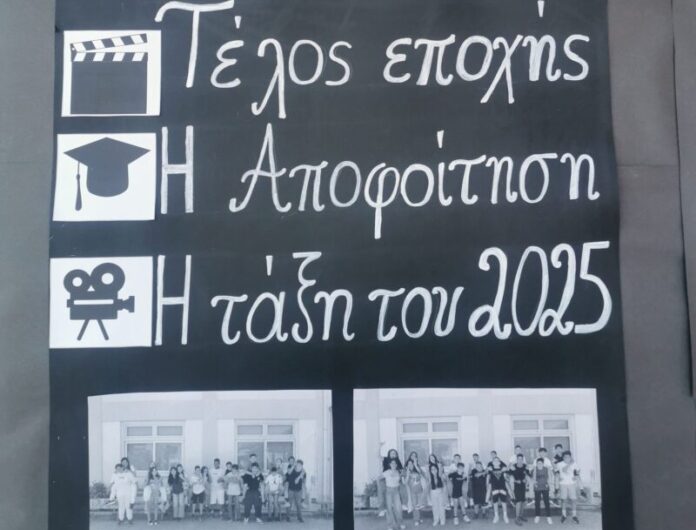 Τέλος εποχής
Η Αποφοίτηση
Η τάξη του 2025